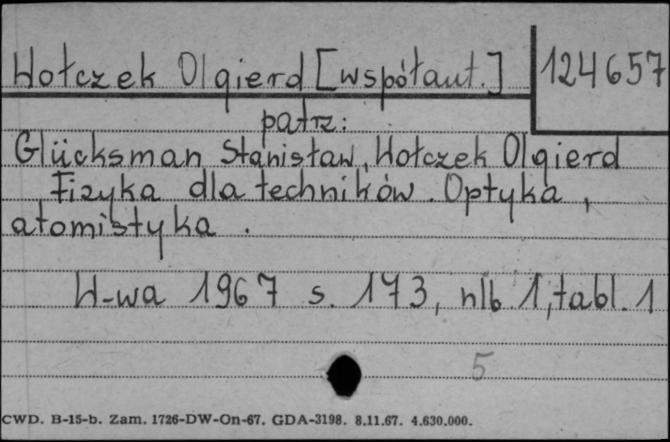 Wołczek Olgierd [współaut.] 124657
patrz:
Glücksman Stanisław, Wołczek Olgierd
Fizyka dla techników. Optyka,
atomistyka.
W-wa 1967 s. 173, nlb. 1, tabl. 1
5
CWD. B-15-b. Zam. 1726-DW-On-67. GDA-3198. 8.11.67. 4.630.000.